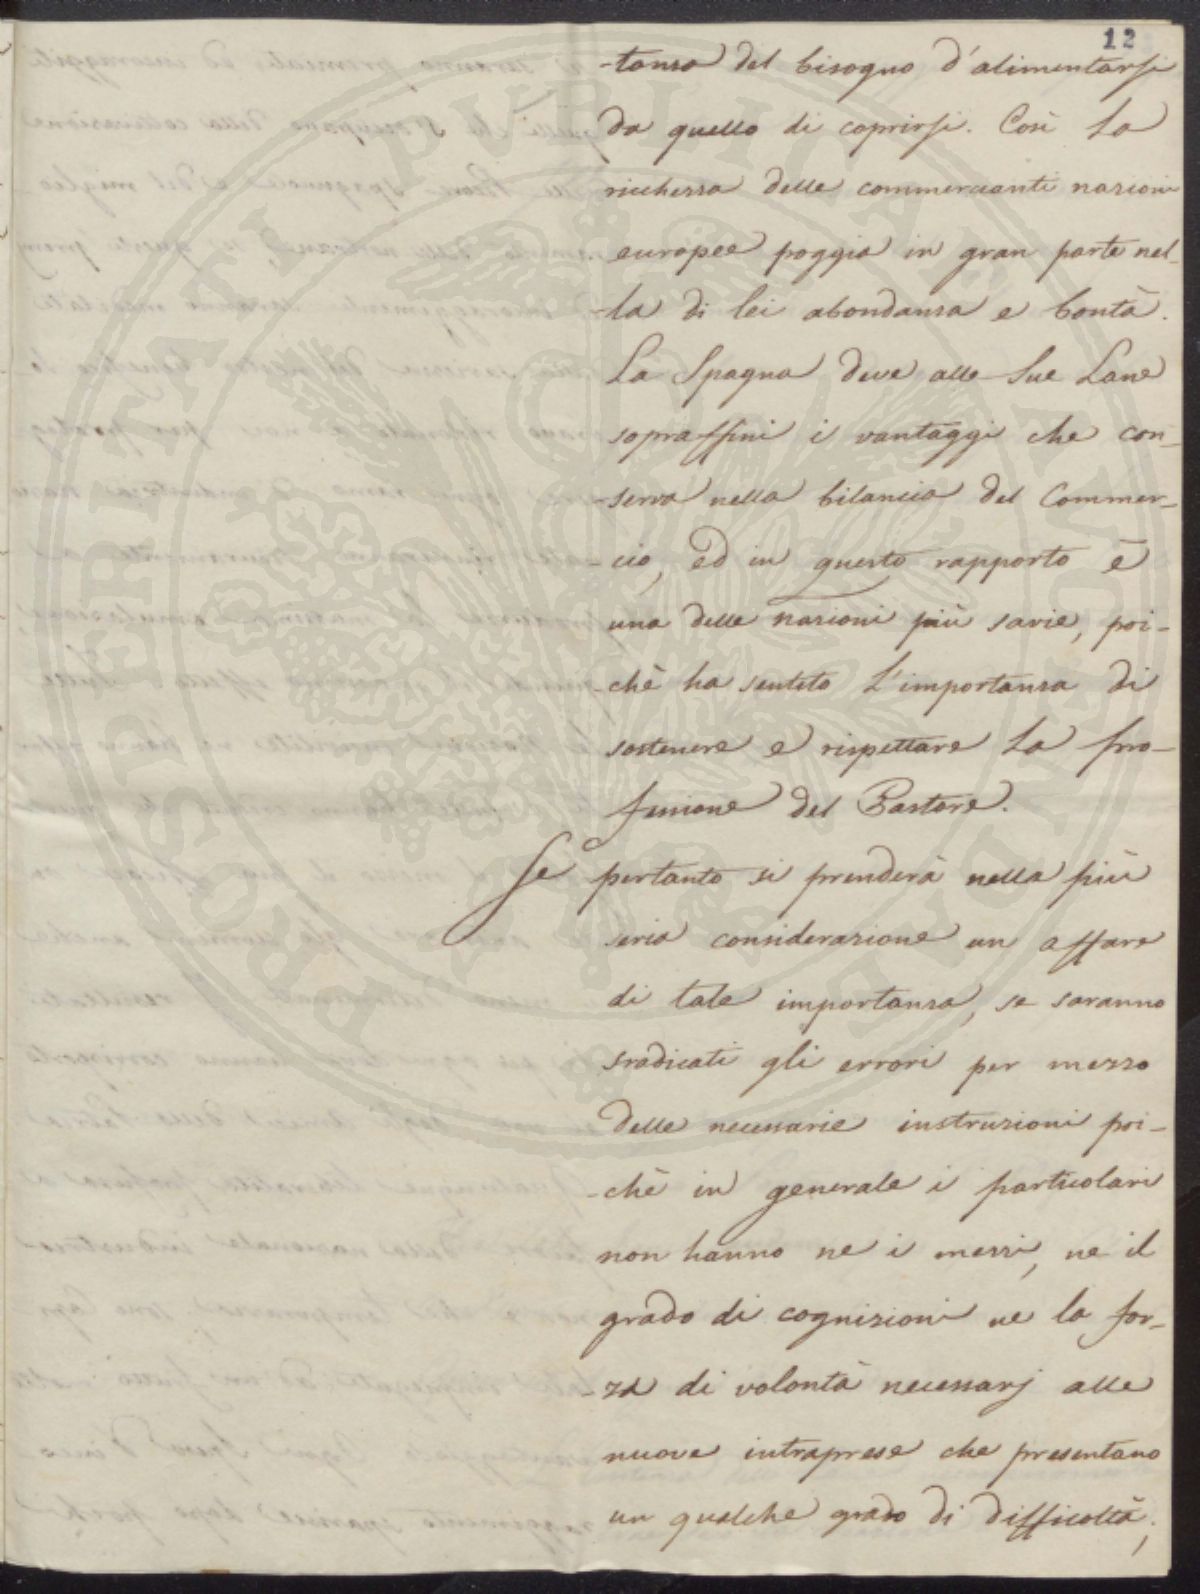 12
-tanza del bisogno d'alimentarsi
da quello di coprirsi. Così La
ricchezza delle commercianti nazioni
europee poggia in gran parte nel-
-la di lei abondanza e bontà.
La Spagna deve alle Sue Lane
sopraffini i vantaggi che con-
-serva nella bilancia del Commer-
-cio, ed in questo rapporto è
una delle nazioni più savie, poi-
-chè ha sentito L'importanza di
sostenere e rispettare La pro-
fessione del Pastore.
Se pertanto si prenderà nella più
seria considerazione un affare
di tale importanza, se saranno
sradicati gli errori per mezzo
delle necessarie instruzioni poi-
-chè in generale i particolari
non hanno ne i mezzi, ne il
grado di cognizioni ne la for-
-za di volontà necessarj alle
nuove intraprese che presentano
un qualche grado di difficoltà;
PROSPERITATI PUBLICAE AUGENDAE